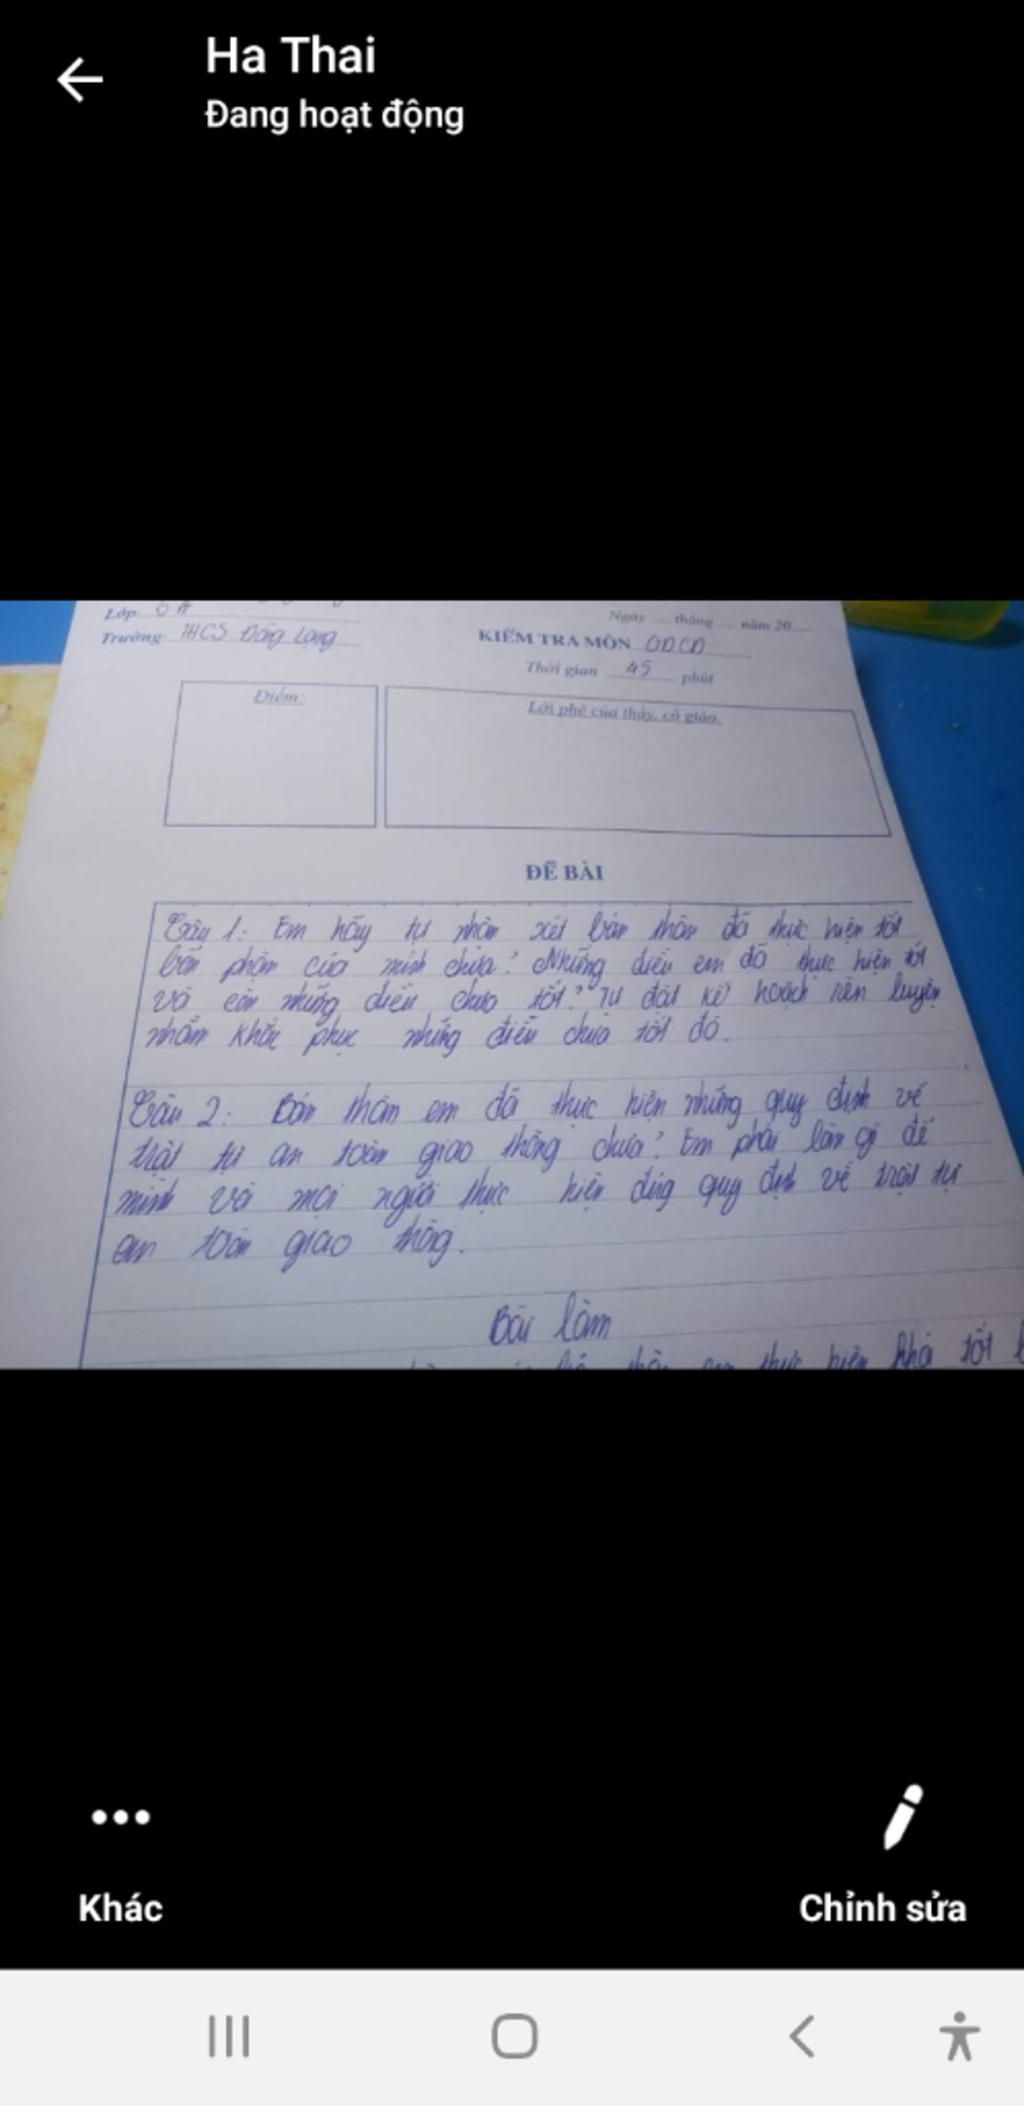 Ha Thai
Đang hoạt động
Lớp: 6A
Ngày ... tháng ... năm 20...
Trường: THCS Đồng Lạng
KIỂM TRA MÔN GDCD
Thời gian 45 phút
Điểm:
Lời phê của thầy, cô giáo.
ĐỀ BÀI
Câu 1: Em hãy tự nhận xét bản thân đã thực hiện tốt
bổn phận của mình chưa? Những điều em đã thực hiện tốt
và còn những điều chưa tốt? Tự đặt kế hoạch rèn luyện
nhằm khắc phục những điều chưa tốt đó.
Câu 2: Bản thân em đã thực hiện những quy định về
trật tự an toàn giao thông chưa? Em phải làm gì để
mình và mọi người thực hiện đúng quy định về trật tự
an toàn giao thông.
Bài làm
thân em thực hiện khá tốt
Khác
Chỉnh sửa